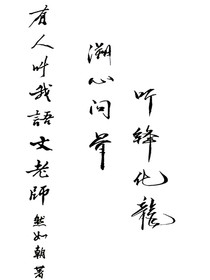 听化龍
溯心问
有人叫我語文老師 然如朝 著